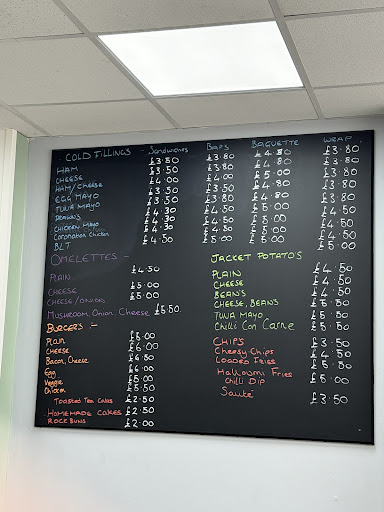 COLD FILLINGS - Sandwiches BAPS BAGUETTE WRAP
HAM £3.80 £3.80 £4.80 £3.80
CHEESE £3.50 £3.80 £4.80 £3.80
HAM/Cheese £4.00 £4.00 £5.00 £4.00
EGG MAYO £3.50 £3.50 £4.80
TUNA MAYO £3.50
PRAWNS £4.30 £4.50
CHICKEN MAYO £4.30 £4.50 £4.50
Coronation Chicken £4.30 £4.50 £5.00 £4.50
BLT £4.50 £5.00 £5.00 £5.00
OMELETTES -
PLAIN £4.50
CHEESE £5.00
CHEESE/ONIONS £5.00
MUSHROOM, ONION, CHEESE £5.50
BURGERS -
PLAIN £5.00
CHEESE £6.00
BACON, Cheese £6.50
Egg £6.00
Veggie £5.00
Chicken £5.50
TOASTED TEA CAKES £2.50
HOMEMADE CAKES £2.50
ROCK BUNS £2.00
JACKET POTATO'S
PLAIN £4.50
CHEESE £4.50
BEAN'S £4.50
CHEESE, BEANS £5.50
TUNA MAYO £5.50
Chilli Con Carne £5.50
CHIP'S £3.50
Cheesy Chips £4.50
LOADED Fries £5.50
Halloumi Fries £5.00
Chilli Dip
Sauté £3.50